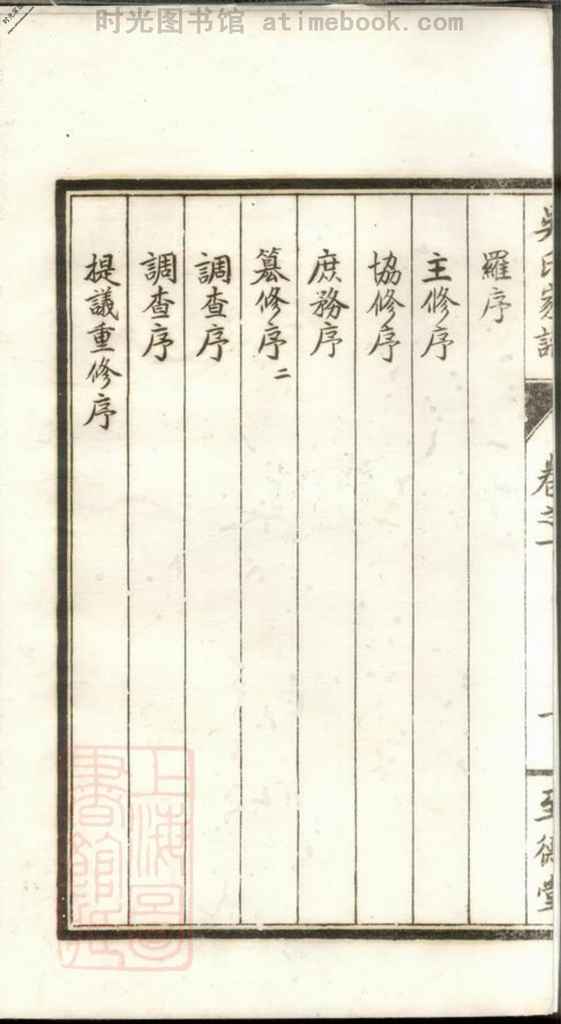 时光图书馆 atimebook.com
吳氏家譜
卷之一
一
至德堂
羅序
主修序
協修序
庶務序
纂修序二
調查序
調查序
提議重修序
上海圖
書館藏